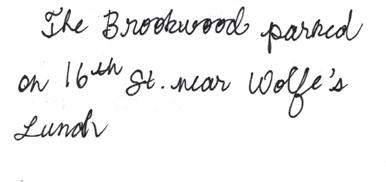 The Brookwood parked
on 16th St. near Wolfe's
Lunch